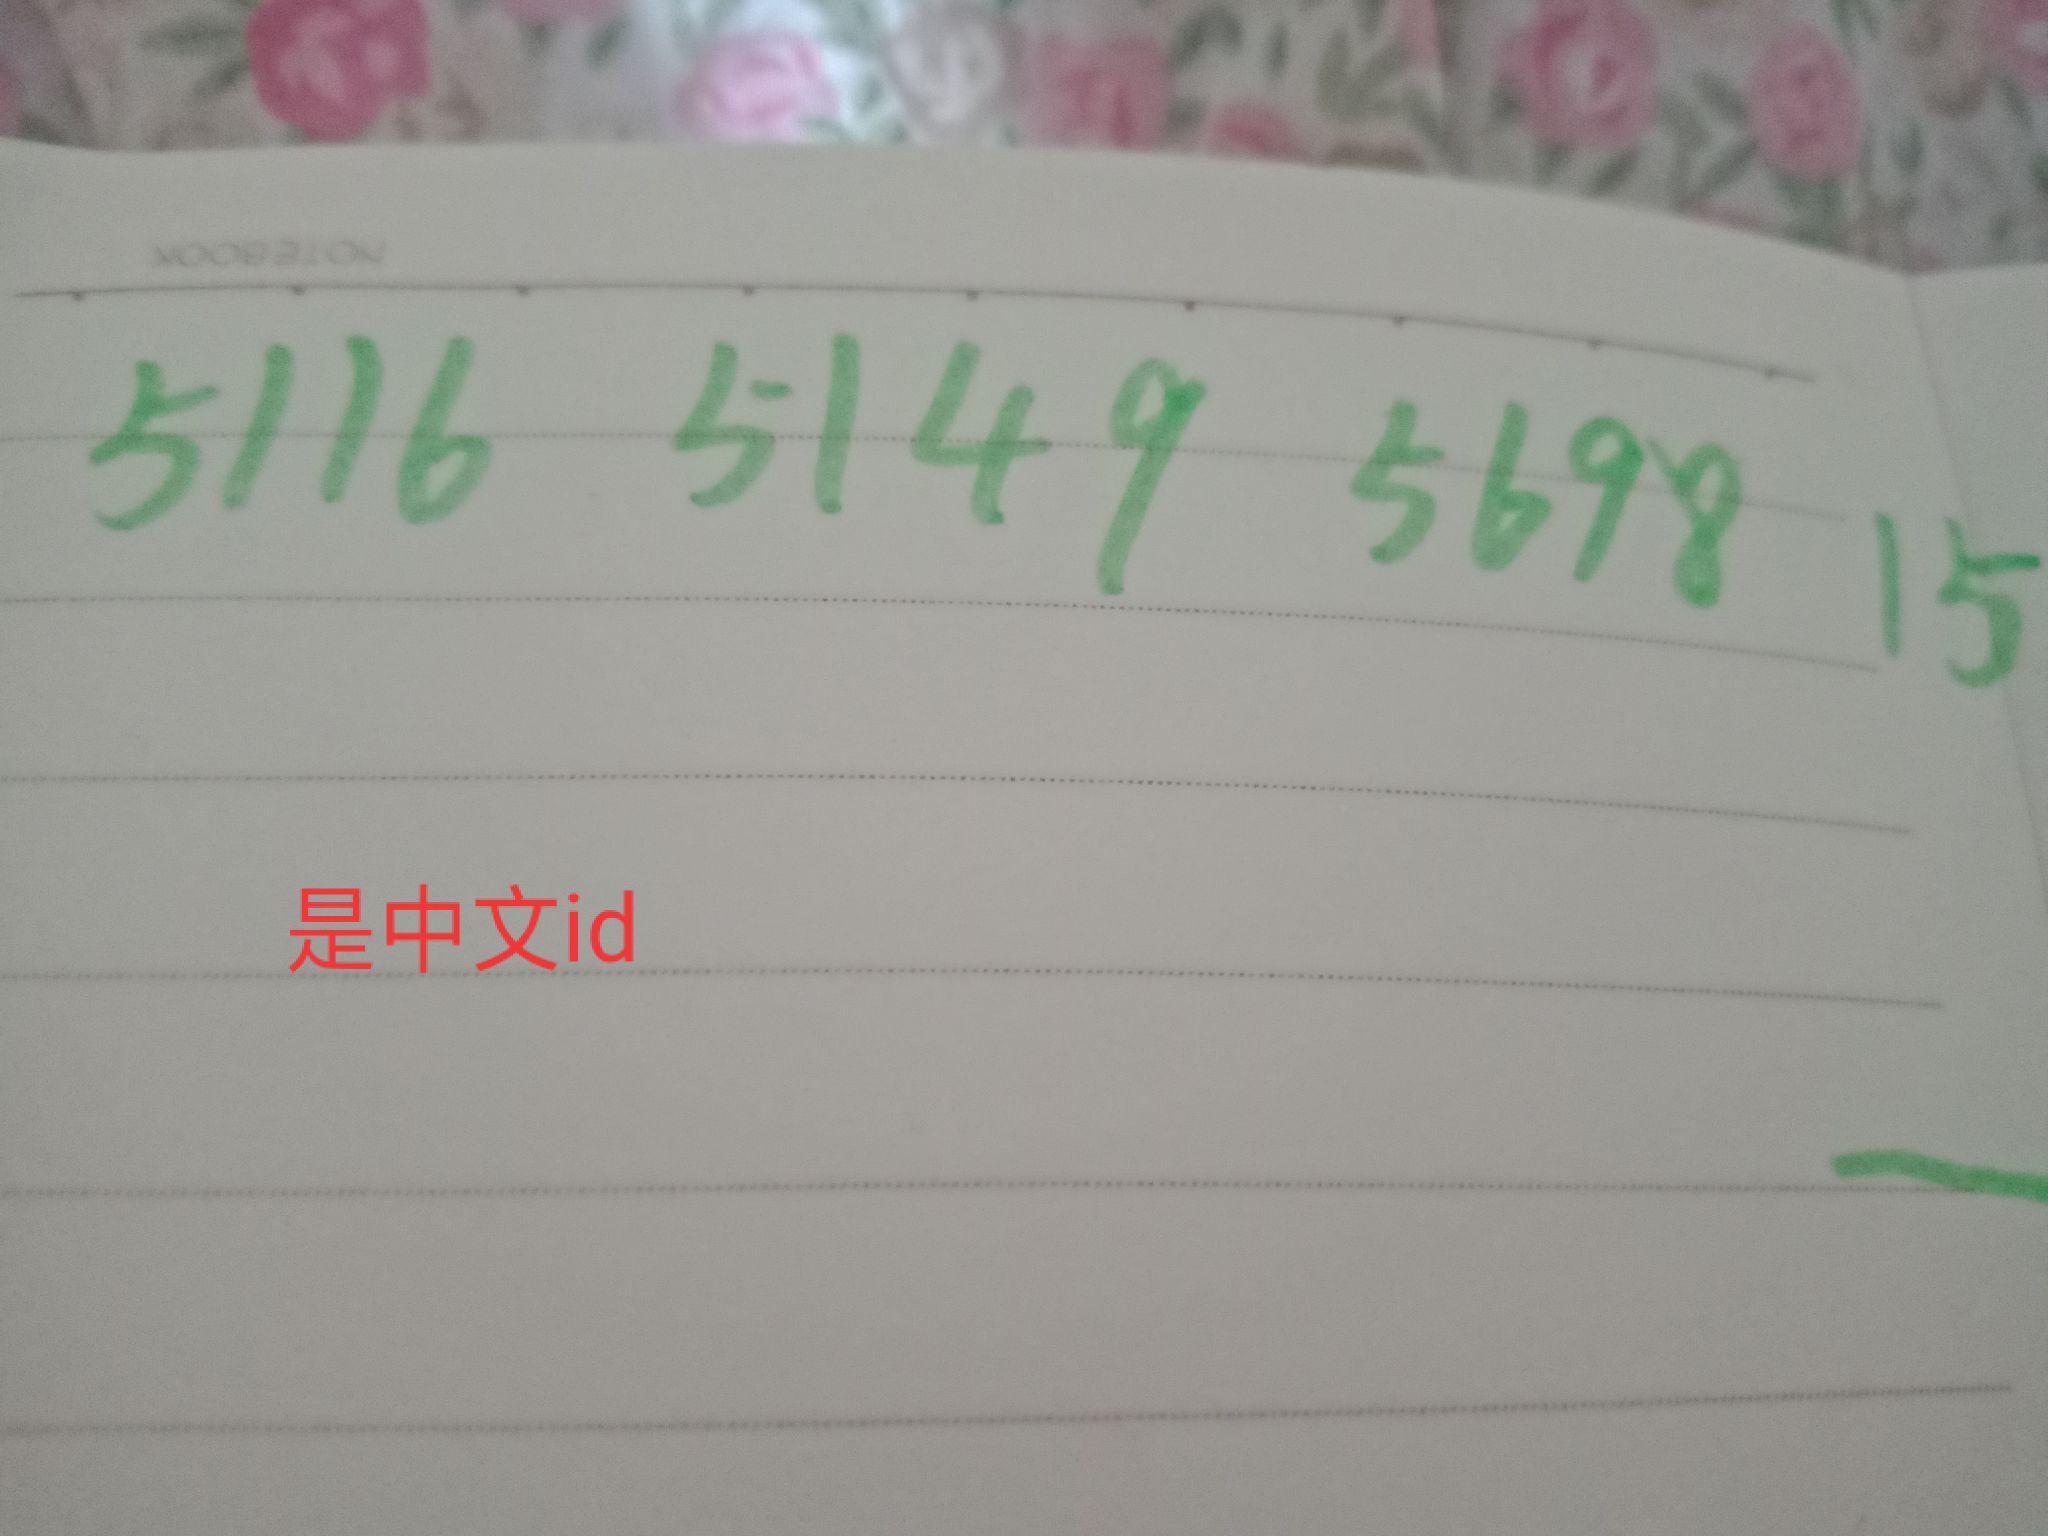 NOTEBOOK
5116 5149 5698 15
是中文id